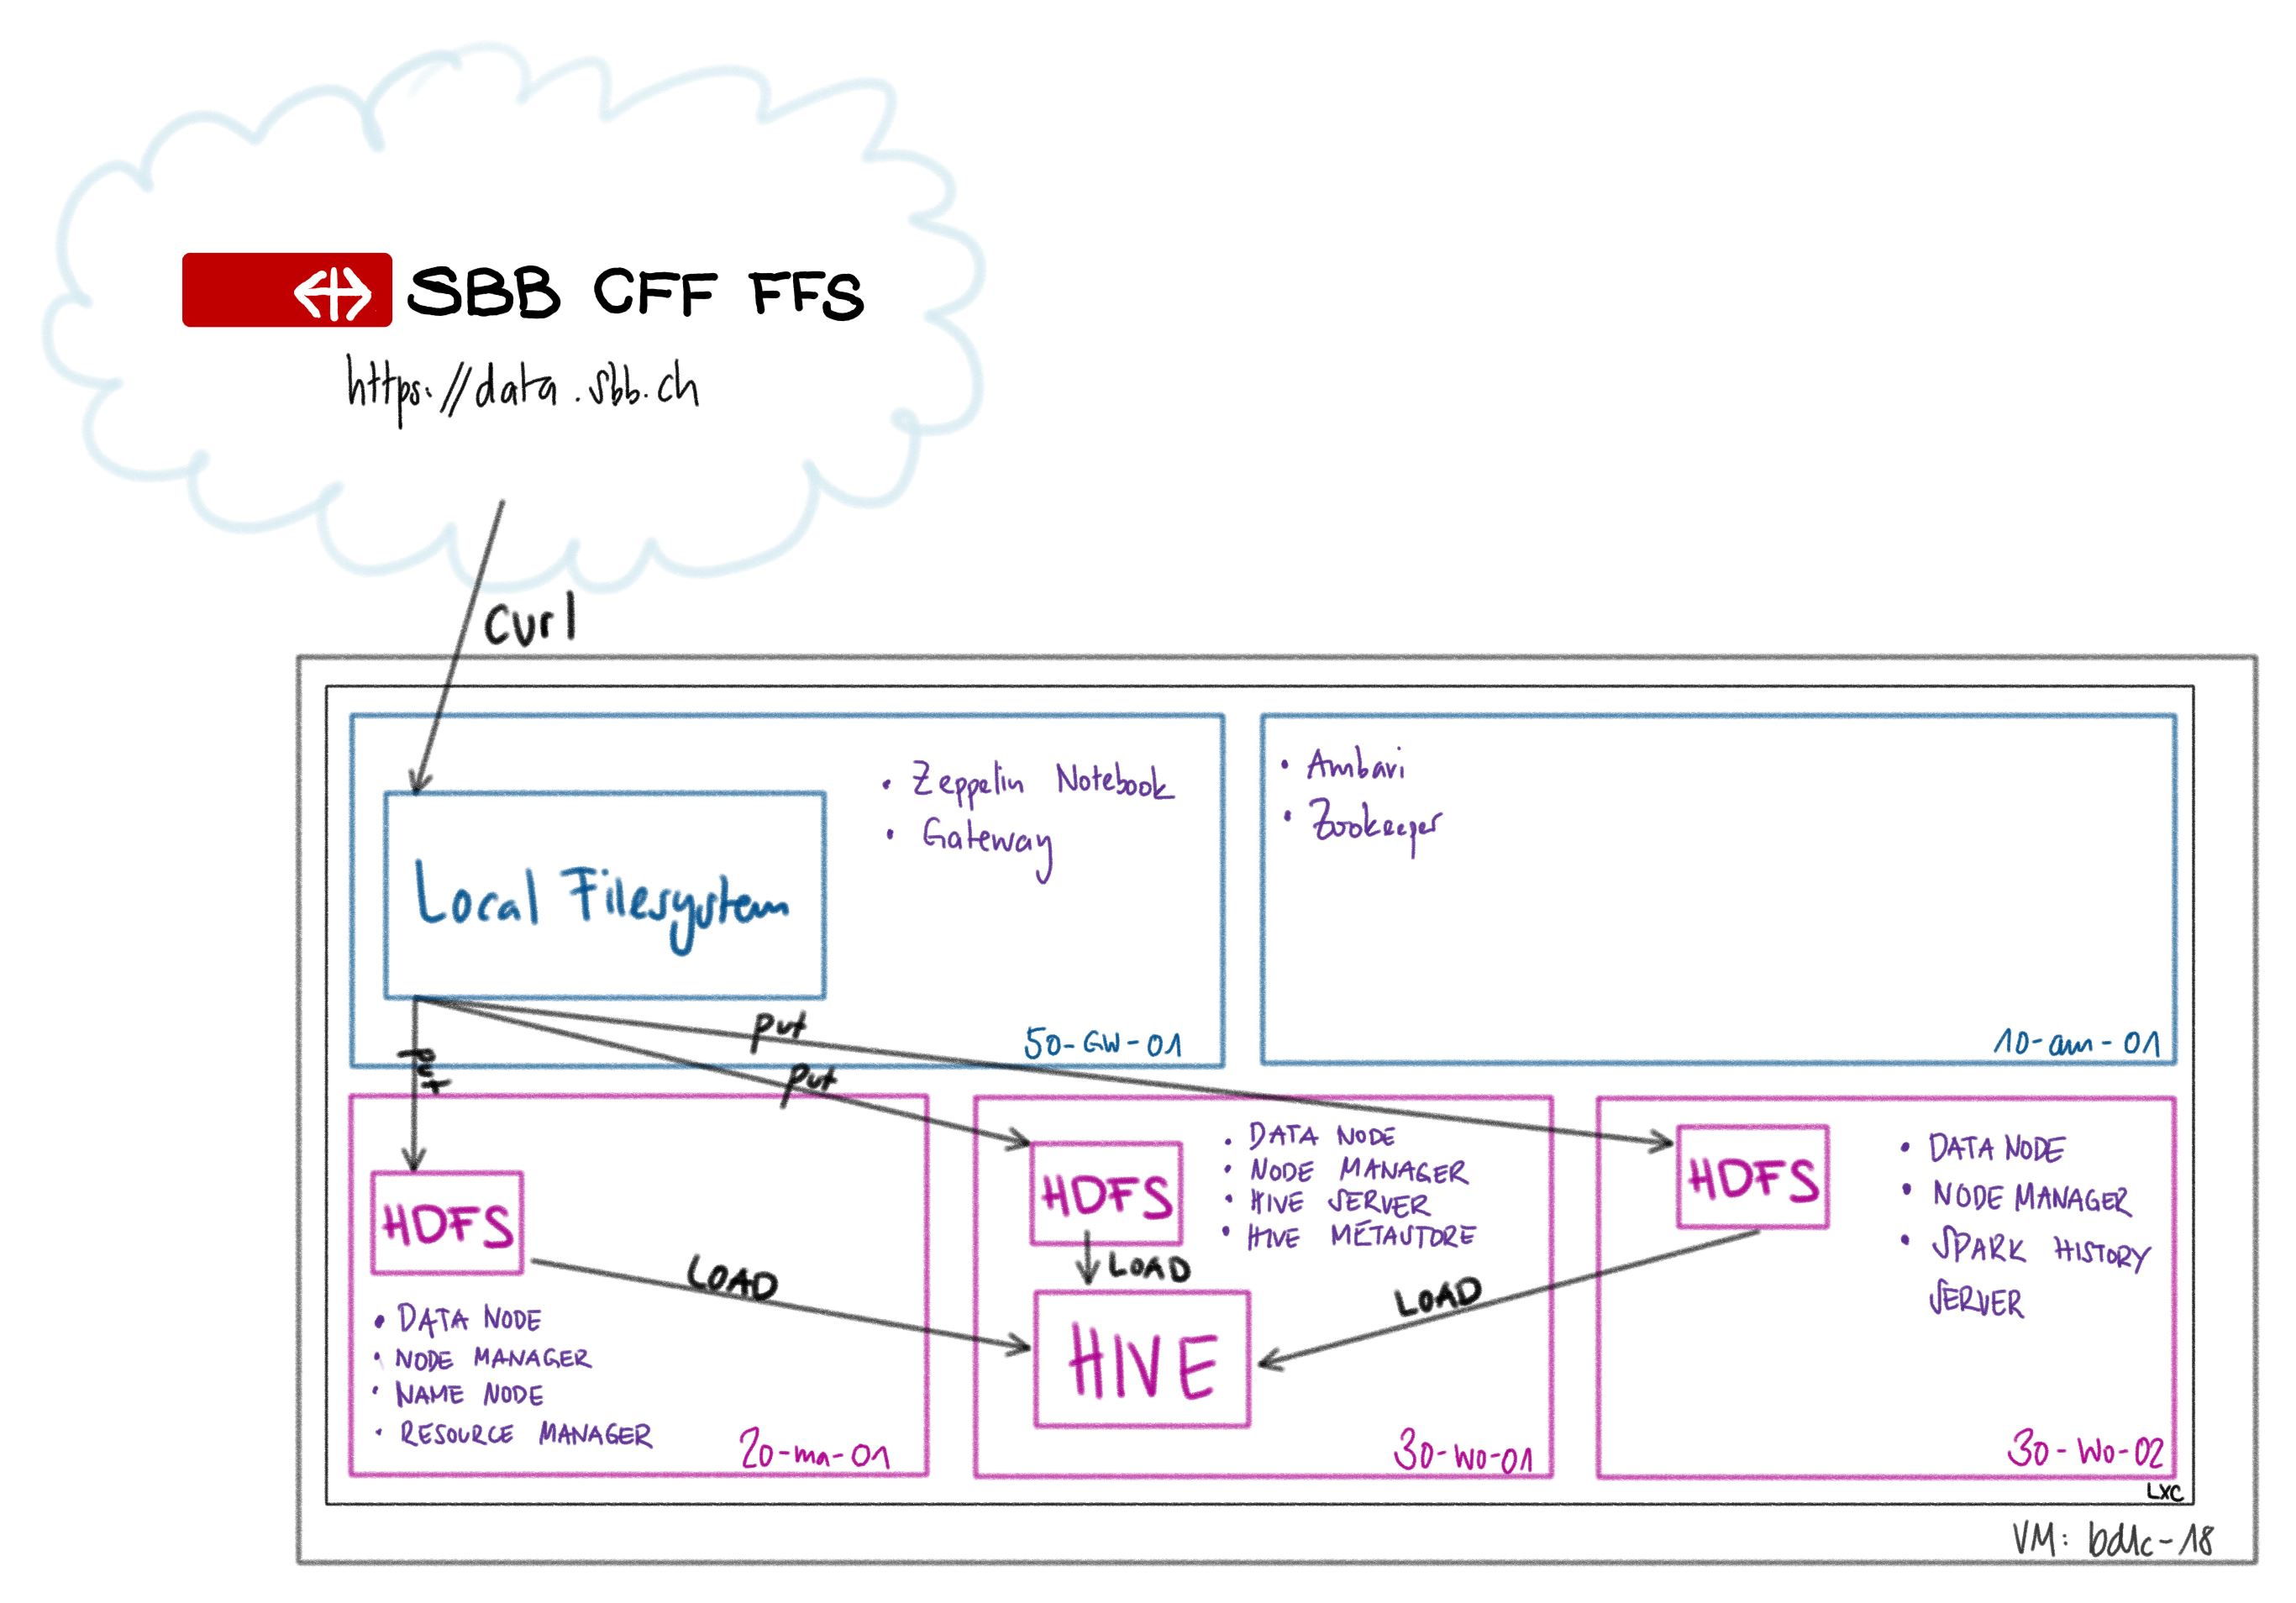 SBB CFF FFS
https://data.sbb.ch
curl
• Zeppelin Notebook
• Gateway
Local Filesystem
50-GW-01
• Ambari
• Zookeeper
10-am-01
put
put
put
HDFS
• DATA NODE
• NODE MANAGER
• NAME NODE
• RESOURCE MANAGER
20-ma-01
LOAD
HDFS
• DATA NODE
• NODE MANAGER
• HIVE SERVER
• HIVE METASTORE
LOAD
HIVE
30-wo-01
LOAD
HDFS
• DATA NODE
• NODE MANAGER
• SPARK HISTORY
SERVER
30-wo-02
LXC
VM: bdlc-18